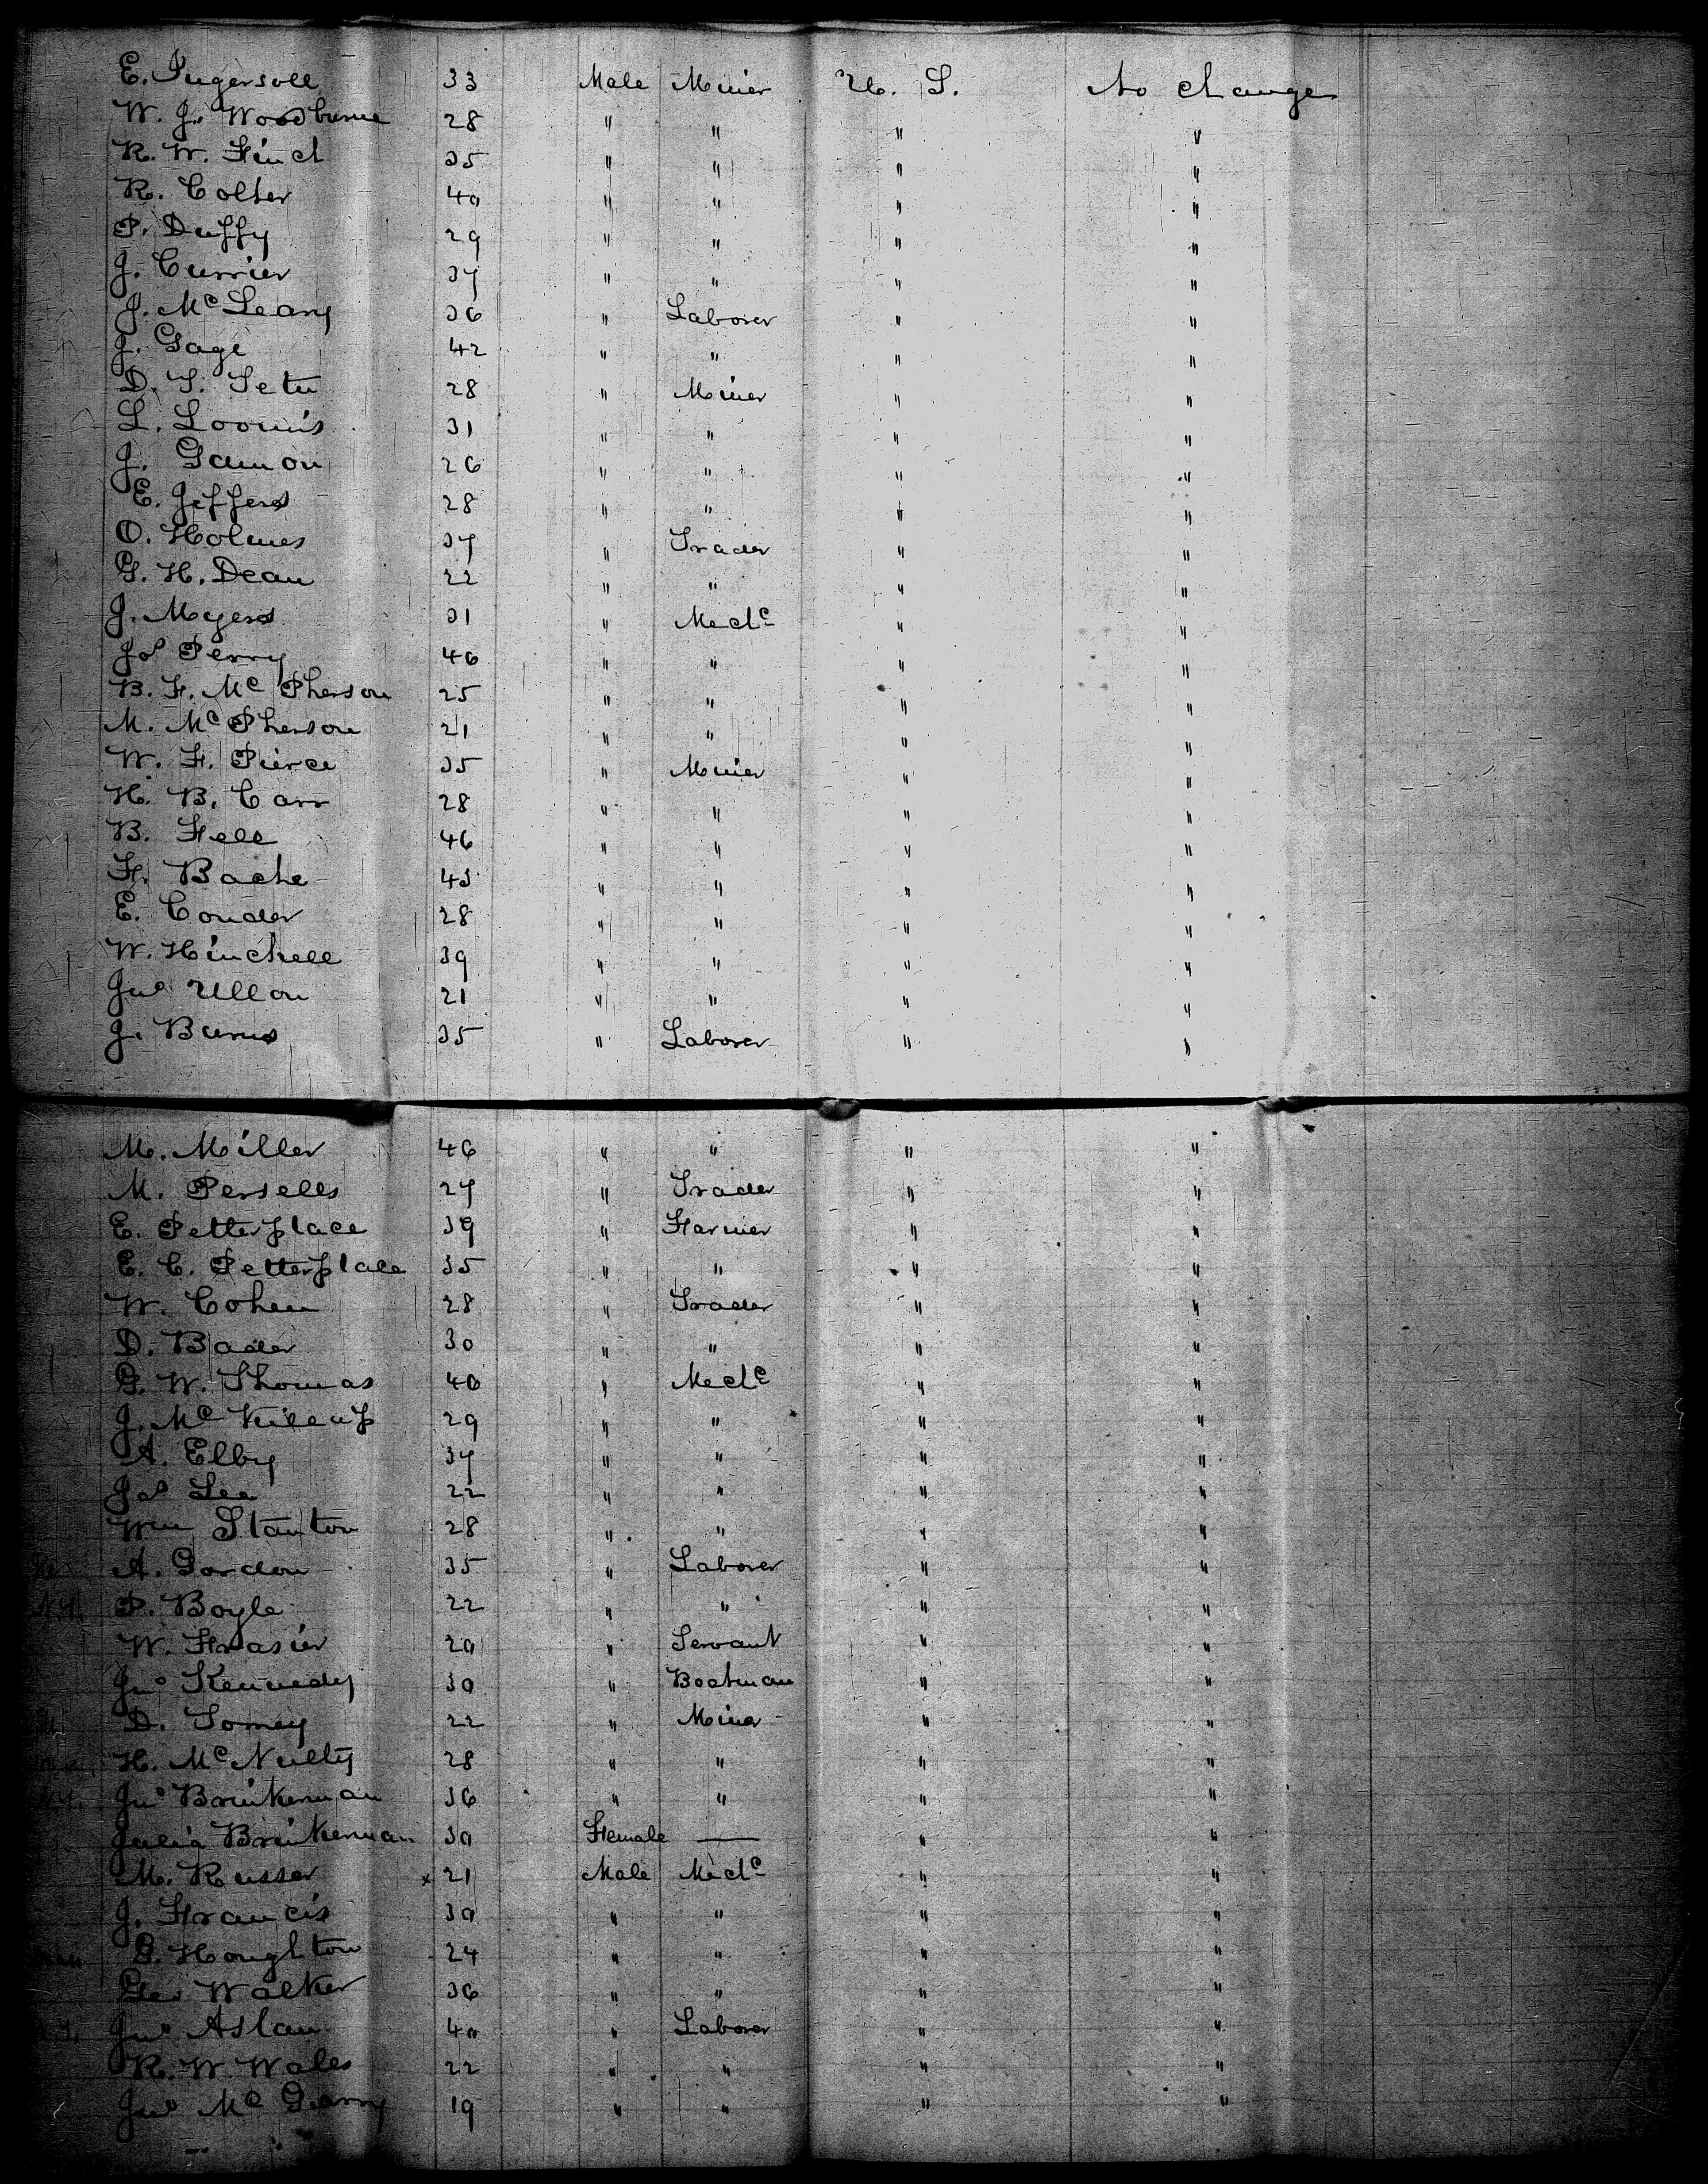 E. Ingersoll 33 Male Miner U. S. No change
W. J. Woodburne 28 " " " "
R. W. Finch 35 " " " "
R. Colter 40 " " " "
P. Duffy 29 " " " "
J. Currier 37 " " " "
J. McLeary 36 " Laborer " "
J. Gage 42 " " " "
D. S. 28 " Miner " "
L. Loomis 31 " " " "
J. Gamon 26 " " " "
E. Jeffers 28 " " " "
O. Holmes 37 " Trader " "
G. H. Dean 22 " " " "
J. Meyers 31 " Mechc " "
Jos Perry 46 " " " "
B. F. McPherson 25 " " " "
M. McPherson 21 " " " "
W. F. Pierce 35 " Miner " "
H. B. Carr 28 " " " "
B. Fell 46 " " " "
F. Bache " " " "
E. Conder 28 " " " "
W. Hinchell 39 " " " "
Jno Ullon 21 " " " "
J. Burns 35 " Laborer " "
M. Miller 46 " " " "
M. Persells 27 " Trader " "
E. Petterplace 39 " Farmer " "
E. C. Petterplace 35 " " " "
W. Cohen 28 " Trader " "
D. Bader 30 " " " "
G. W. Thomas 40 " Mechc " "
J. McKillup 29 " " " "
A. Elby 37 " " " "
Jas Lee 22 " " " "
Wm Stanton 28 " " " "
A. Gordon 35 " Laborer " "
N.Y. P. Boyle 22 " " " "
W. Frasier 20 " Servant " "
Jno Kennedy 30 " Boatman " "
D. Tomey 22 " Miner " "
H. McNulty 28 " " " "
Jno Brinkerman 36 " " " "
Julia Brinkerman 30 Female — " "
M. Russer x 21 Male Mechc " "
J. Francis 30 " " " "
G. Houghton 24 " " " "
Geo Walker 36 " " " "
Jno Aslan 40 " Laborer " "
R. W. Wales 22 " " " "
Jno McGarry 19 " " " "